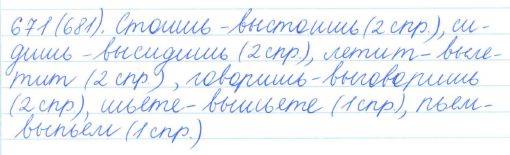 671 (681). Стоишь - выстоишь (2 спр.), си-
дишь - высидишь (2 спр), летит - выле-
тит (2 спр), говоришь - выговоришь
(2 спр), шьете - вышьете (1 спр), пьем -
выпьем (1 спр.)